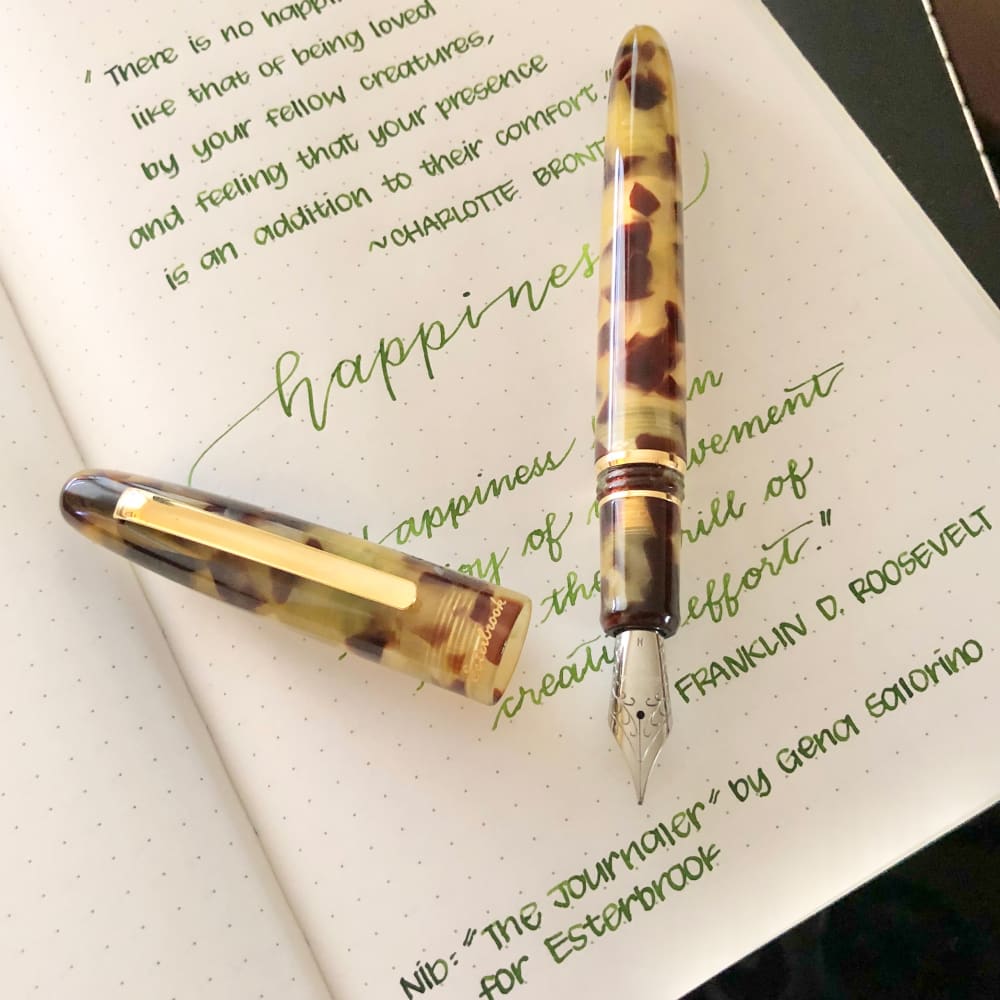 "There is no happi
like that of being loved
by your fellow creatures,
and feeling that your presence
is an addition to their comfort."
~CHARLOTTE BRONT
happines
happiness in
oy of vement
the rill of
creati effort."
FRANKLIN D. ROOSEVELT
Nib: "The Journaler" by Gena Salorino
for Esterbrook
Esterbrook